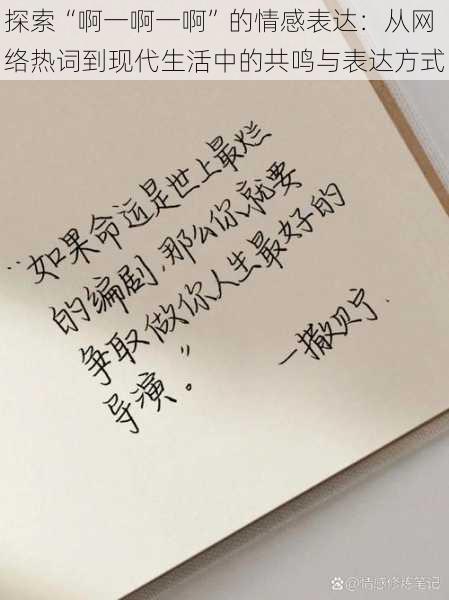 探索“啊一啊一啊”的情感表达：从网
络热词到现代生活中的共鸣与表达方式
“如果命运是世上最烂
的编剧，那么你就要
争取做你人生最好的
导演。”
一撒贝宁
@情感修炼笔记